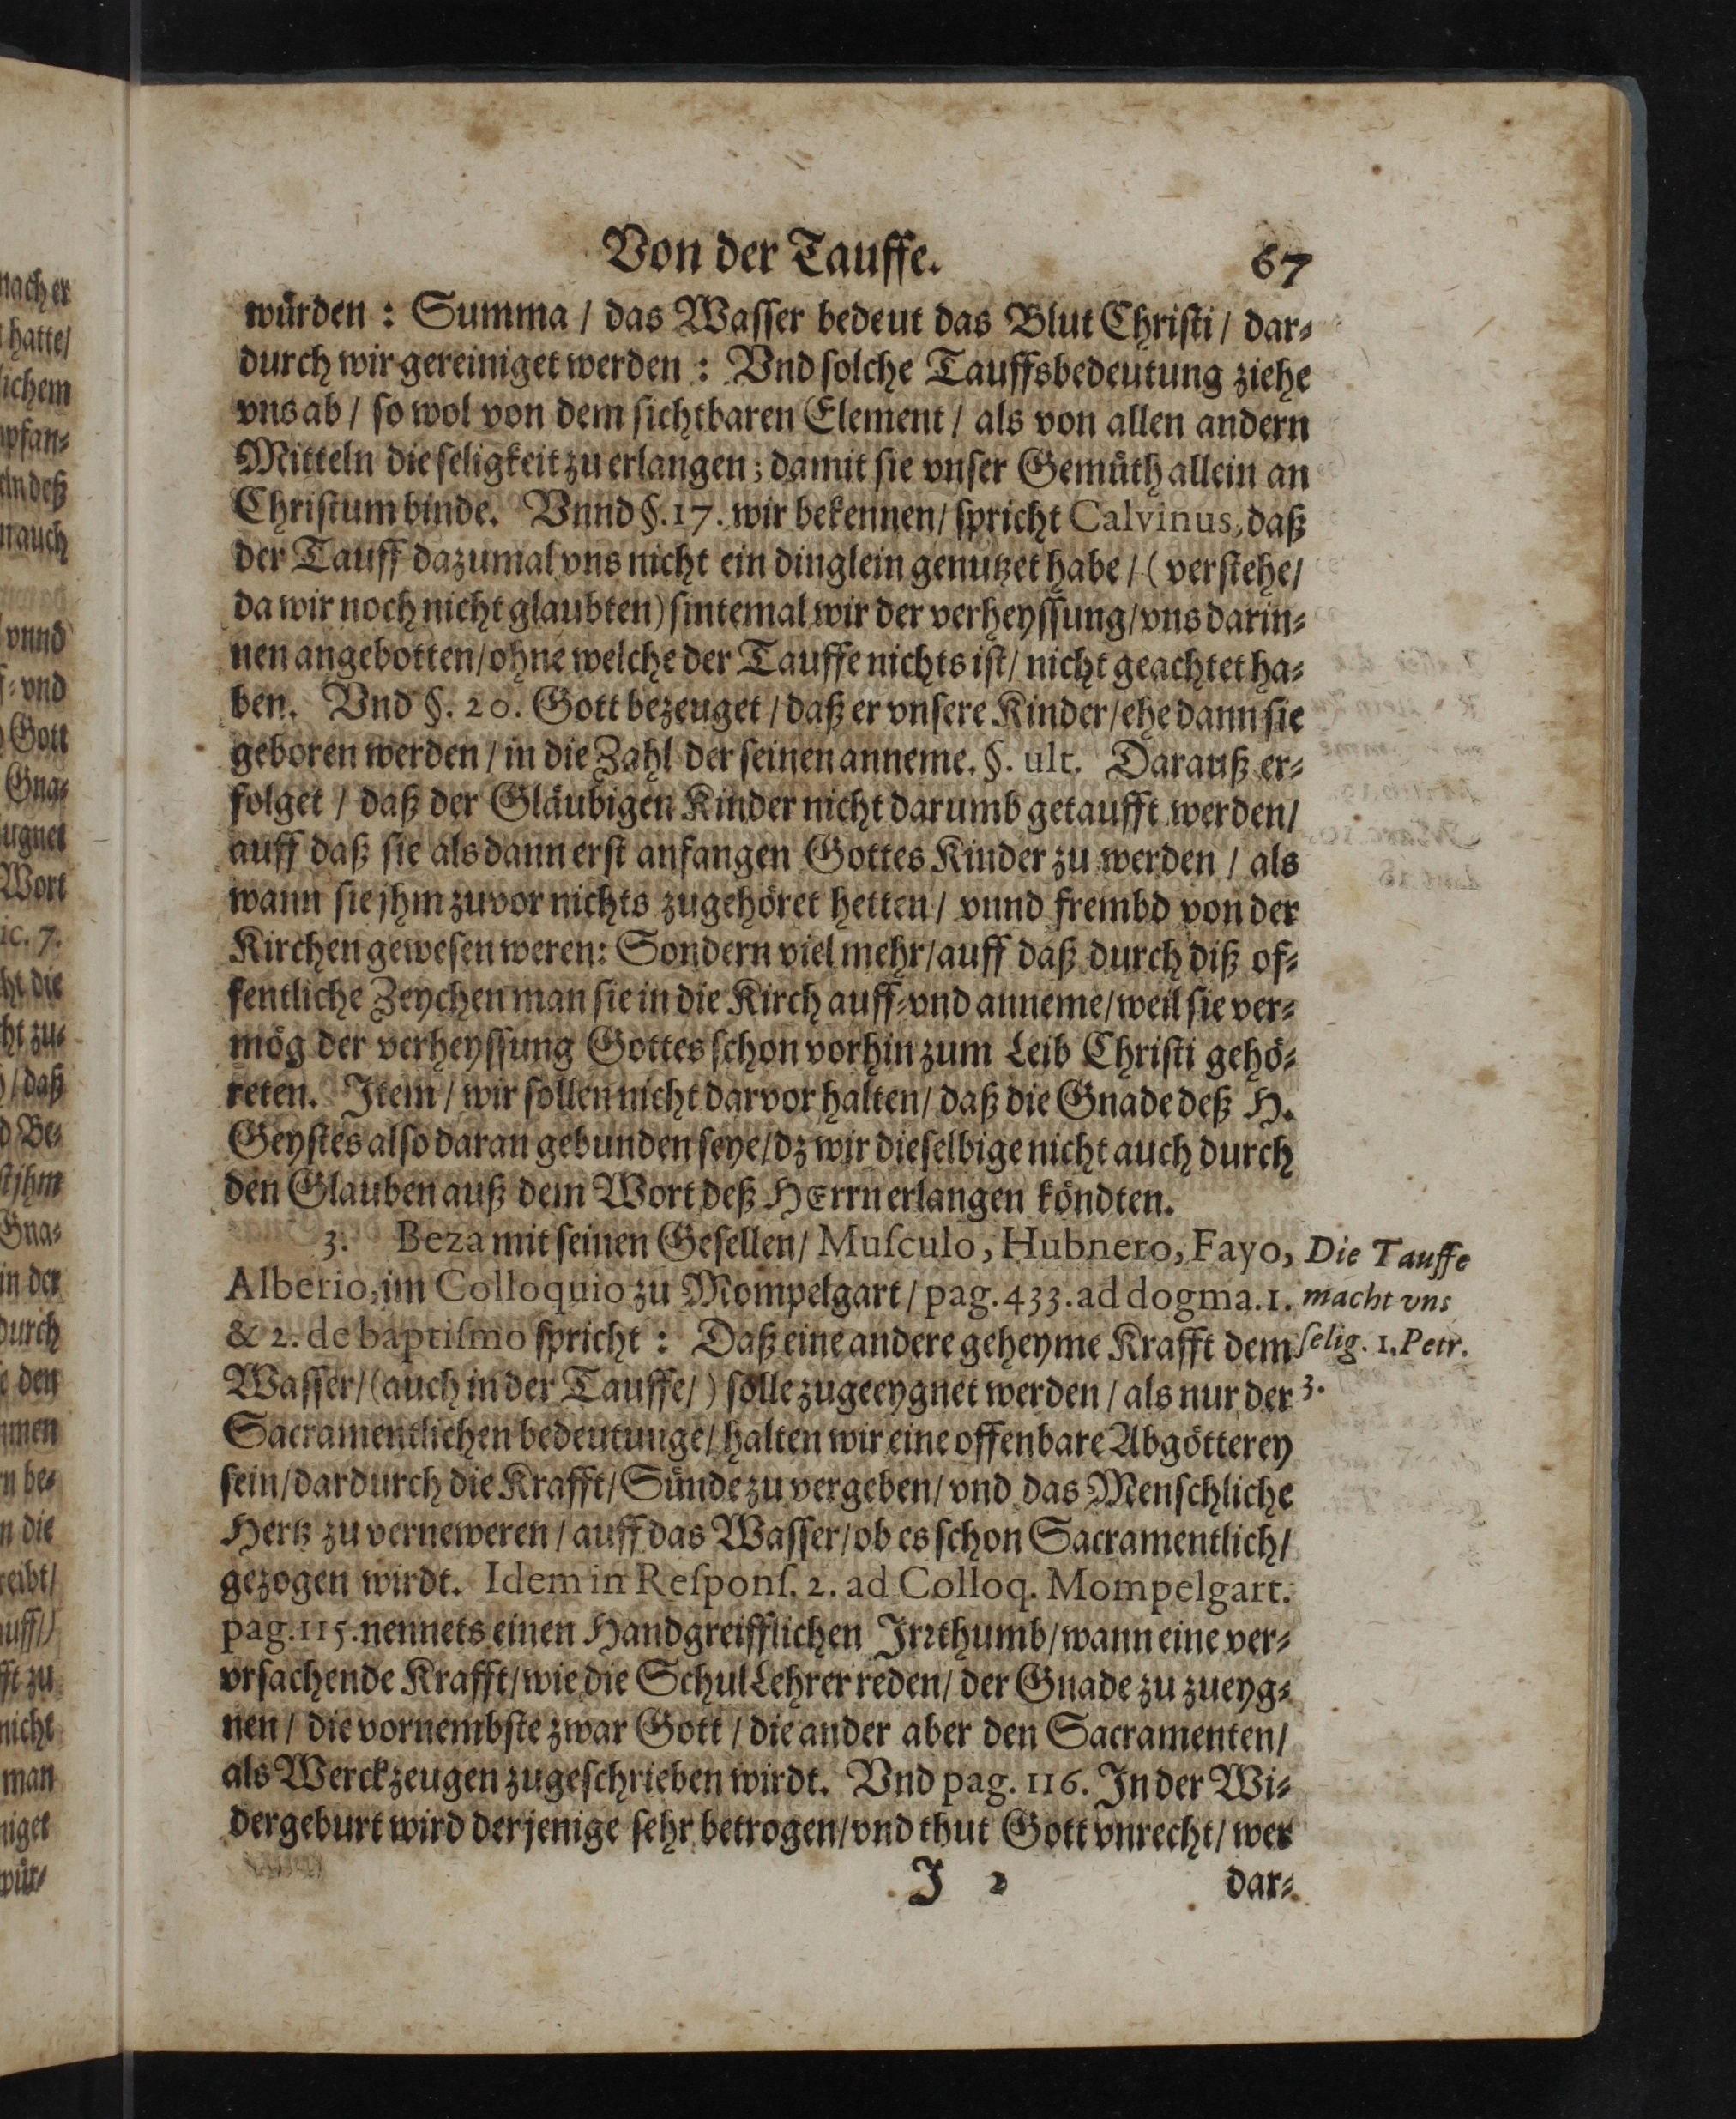 Von der Tauffe. 67
würden : Summa / das Wasser bedeut das Blut Christi / dar⸗
durch wir gereiniget werden : Vnd solche Tauffsbedeutung ziehe
vns ab / so wol von dem sichtbaren Element / als von allen andern
Mitteln die seligkeit zu erlangen ; damit sie vnser Gemüth allein an
Christum binde. Vnnd §. 17. wir bekennen / spricht Calvinus, daß
der Tauff dazumal vns nicht ein dinglein genutzet habe / (verstehe /
da wir noch nicht glaubten) sintemal wir der verheyssung / vns darin⸗
nen angebotten / ohne welche der Tauffe nichts ist / nicht geachtet ha⸗
ben. Vnd §. 20. Gott bezeuget / daß er vnsere Kinder / ehe dann sie
geboren werden / in die Zahl der seinen anneme. §. ult. Darauß er⸗
folget / daß der Gläubigen Kinder nicht darumb getaufft werden /
auff daß sie als dann erst anfangen Gottes Kinder zu werden / als
wann sie jhm zuvor nichts zugehöret hetten / vnnd frembd von der
Kirchen gewesen weren: Sondern viel mehr / auff daß durch diß of⸗
fentliche Zeychen man sie in die Kirch auff⸗ vnd anneme / weil sie ver⸗
mög der verheyssung Gottes schon vorhin zum Leib Christi gehö⸗
reten. Item / wir sollen nicht darvor halten / daß die Gnade deß H.
Geystes also daran gebunden seye / dz wir dieselbige nicht auch durch
den Glauben auß dem Wort deß HErrn erlangen köndten.
3. Beza mit seinen Gesellen / Muſculo, Hubnero, Fayo,
Alberio, im Colloquio zu Mompelgart / pag. 433. ad dogma. 1.
& 2. de baptiſmo spricht : Daß eine andere geheyme Krafft dem
Wasser / (auch in der Tauffe /) solle zugeeygnet werden / als nur der
Sacramentlichen bedeutunge / halten wir eine offenbare Abgötterey
sein / dardurch die Krafft / Sünde zu vergeben / vnd das Menschliche
Hertz zu verneweren / auff das Wasser / ob es schon Sacramentlich /
gezogen wirdt. Idem in Reſponſ. 2. ad Colloq. Mompelgart.
pag. 115. nennets einen Handgreifflichen Irrthumb / wann eine ver⸗
vrsachende Krafft / wie die Schul Lehrer reden / der Gnade zu zueyg⸗
nen / die vornembste zwar Gott / die ander aber den Sacramenten /
als Werckzeugen zugeschrieben wirdt. Vnd pag. 116. In der Wi⸗
dergeburt wird derjenige sehr betrogen / vnd thut Gott vnrecht / wer
J 2 dar⸗
Die Tauffe
macht vns
ſelig. 1. Petr.
3.
nach er
hatte /
lichem
pfan⸗
ein deß
auch
vnnd
vnd
Gott
Gna⸗
ugnet
Wort
ic. 7.
die
zu⸗
/ daß
Be⸗
jhm
Gna⸗
in der
durch
den
men
be⸗
n die
eibt /
zu
nicht
man
niget
wür⸗